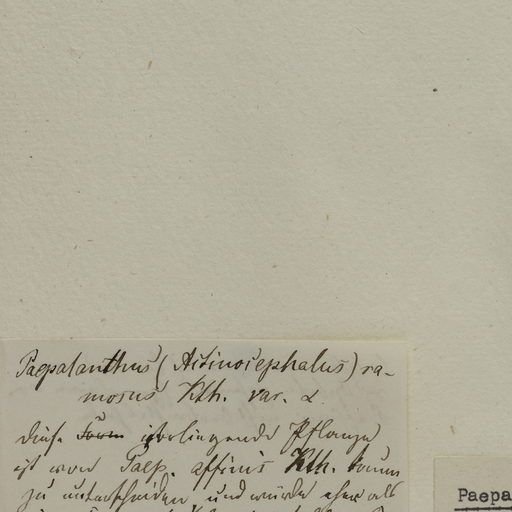 Paepalanthus (Actinocephalus) ra-
mosus Kth. var. α
Diese Form vorliegende Pflanze
ist von Paep. affinis Kth. kaum
zu unterscheiden und würde eher als
Paepa